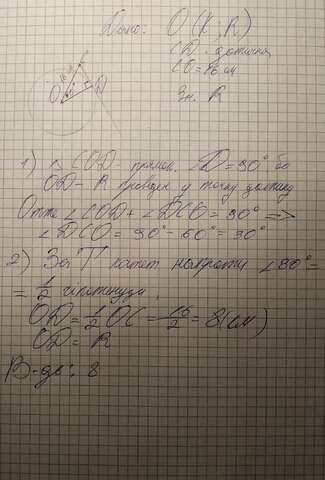 Дано: O (К ; R)
CD - дотична
CO = 16 см
Зн. R
O
D
1) △ COD - прямок. ∠D = 90° бо
OD - R проведен у точку дотику
Отже ∠COD + ∠DCO = 90° =>
∠DCO = 90° - 60° = 30°
2) За Т катет навпроти ∠30° =
= 1/2 гіпотенузи,
OD = 1/2 OC = 16/2 = 8 (см)
OD = R
В-дь: 8